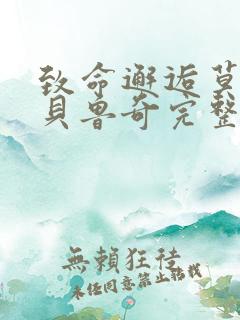 致命邂逅莫
貝魯奇完整
無賴狂徒
未经同意禁止转载